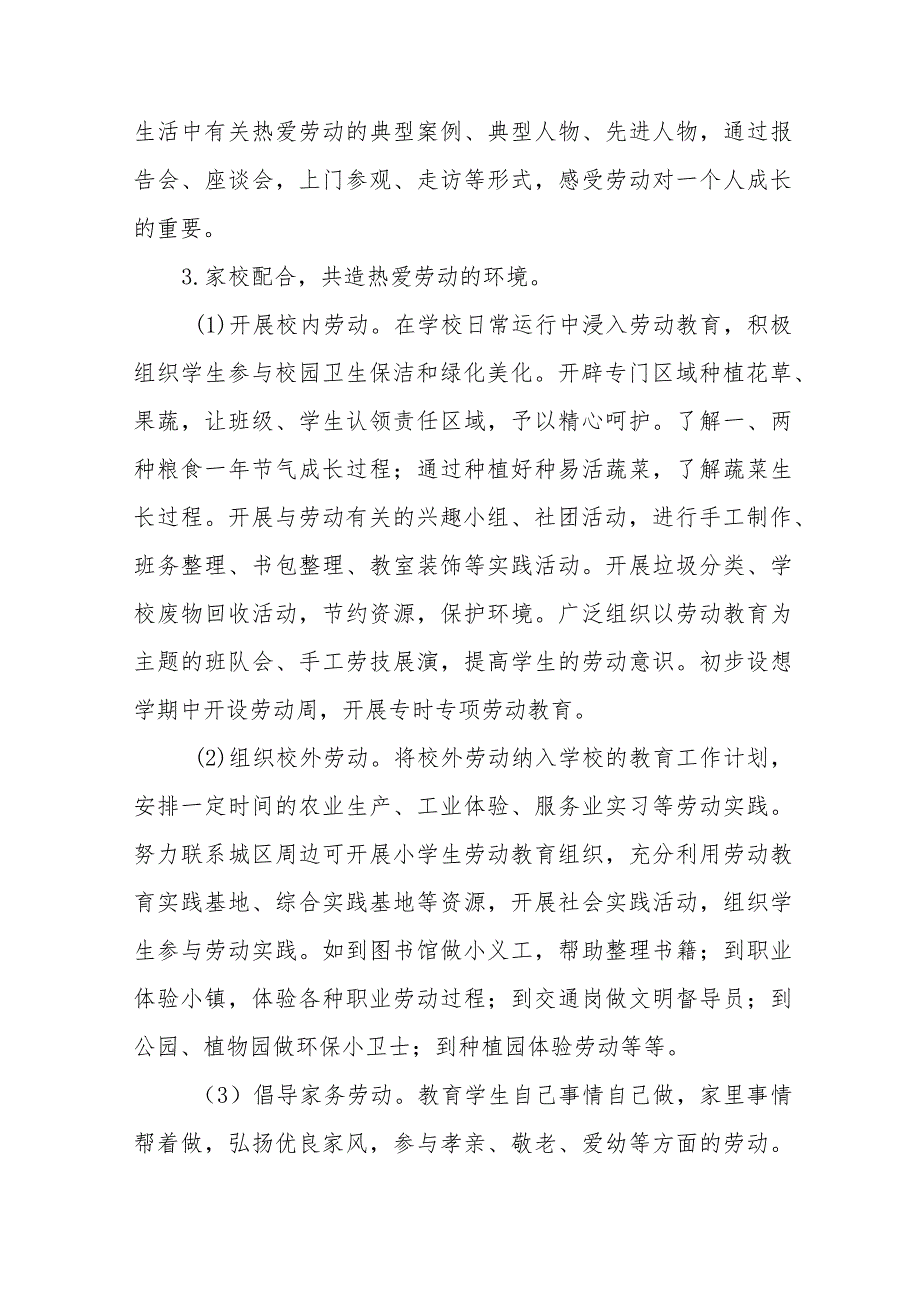 生活中有关热爱劳动的典型案例、典型人物、先进人物，通过报
告会、座谈会，上门参观、走访等形式，感受劳动对一个人成长
的重要。
3.家校配合，共造热爱劳动的环境。
(1)开展校内劳动。在学校日常运行中浸入劳动教育，积极
组织学生参与校园卫生保洁和绿化美化。开辟专门区域种植花草、
果蔬，让班级、学生认领责任区域，予以精心呵护。了解一、两
种粮食一年节气成长过程；通过种植好种易活蔬菜，了解蔬菜生
长过程。开展与劳动有关的兴趣小组、社团活动，进行手工制作、
班务整理、书包整理、教室装饰等实践活动。开展垃圾分类、学
校废物回收活动，节约资源，保护环境。广泛组织以劳动教育为
主题的班队会、手工劳技展演，提高学生的劳动意识。初步设想
学期中开设劳动周，开展专时专项劳动教育。
(2)组织校外劳动。将校外劳动纳入学校的教育工作计划，
安排一定时间的农业生产、工业体验、服务业实习等劳动实践。
努力联系城区周边可开展小学生劳动教育组织，充分利用劳动教
育实践基地、综合实践基地等资源，开展社会实践活动，组织学
生参与劳动实践。如到图书馆做小义工，帮助整理书籍；到职业
体验小镇，体验各种职业劳动过程；到交通岗做文明督导员；到
公园、植物园做环保小卫士；到种植园体验劳动等等。
（3）倡导家务劳动。教育学生自己事情自己做，家里事情
帮着做，弘扬优良家风，参与孝亲、敬老、爱幼等方面的劳动。